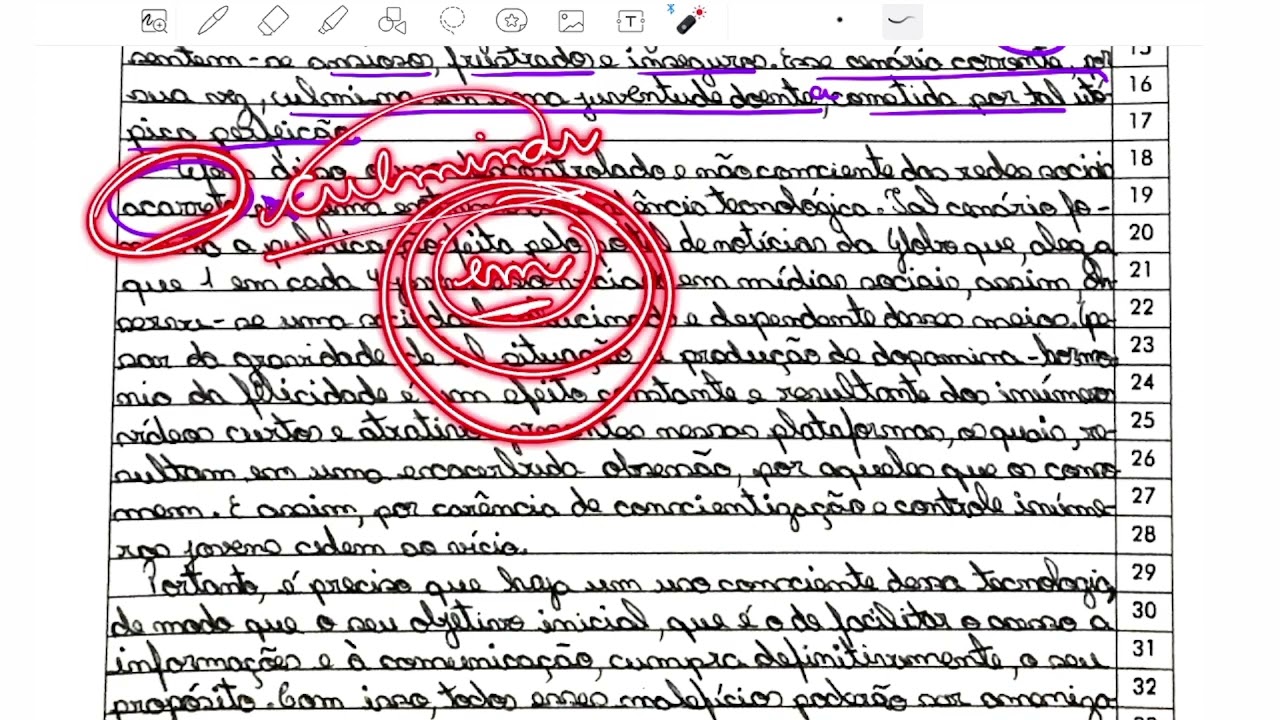 sentem-se ansioso, frustrado e inseguro. Esse cenário corrente, por 15
sua vez, culmina em uma juventude doente, acometida por tal utó- 16
pica perfeição. 17
disso controlado e não consciente das redes sociais 18
culminar
acarreta uma tecnológica. Tal cenário fo- 19
a publicação feita pelo de notícias da Globo que, alega 20
em
que 1 em cada em mídias sociais, assim 21
se uma e dependente desses meios. Ape- 22
sar da gravidade de situação a produção de dopamina - hormo- 23
nio da felicidade é um efeito constante e resultante dos inúmeros 24
vídeos curtos e atrativos presentes nessas plataformas, os quais, re- 25
sultam em uma obsessão, por aqueles que os conso- 26
mem. E assim, por carência de conscientização e controle inúme- 27
ros jovens cedem ao vício. 28
Portanto, é preciso que haja um uso consciente dessa tecnologia, 29
de modo que o seu objetivo inicial, que é o de facilitar o acesso a 30
informações e à comunicação, cumpra definitivamente, o seu 31
propósito. Com isso, todos esses malefícios poderão ser 32